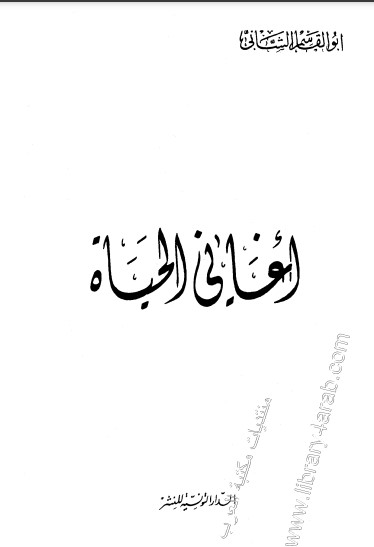 ابو القاسم الشابي
أغاني الحياة
الدار التونسية للنشر
منتديات مكتبة العرب
www.library4arab.com